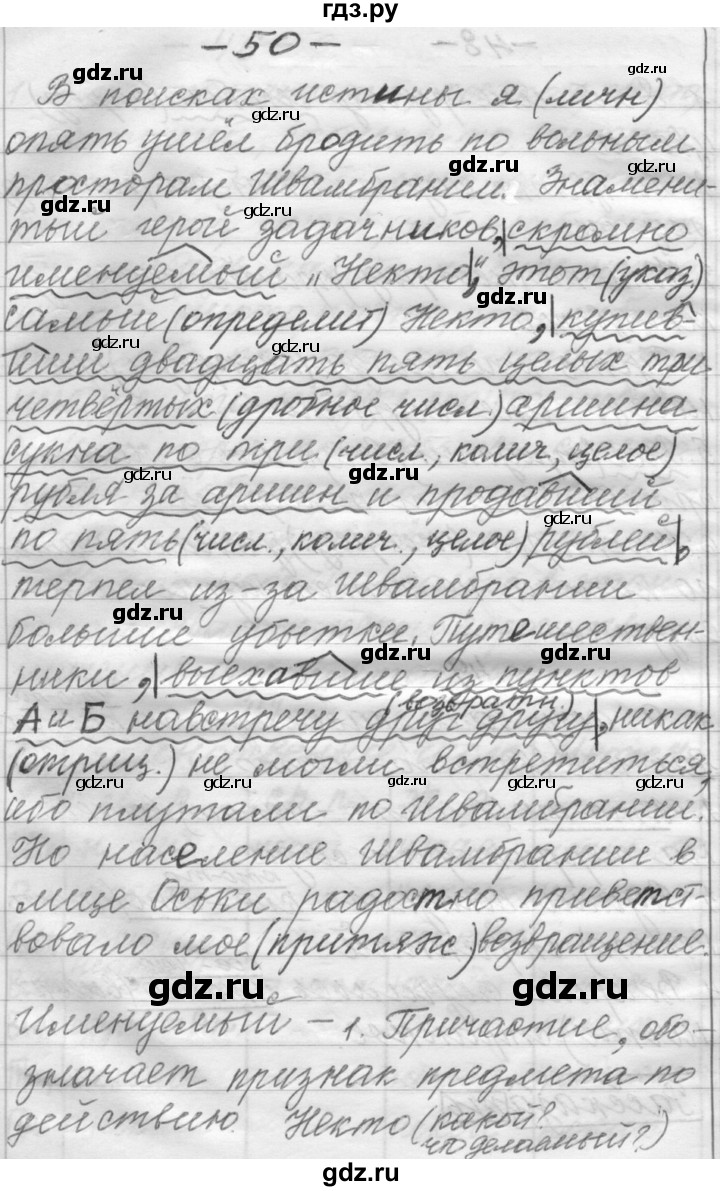 гдз.ру
-50-
В поисках истины я (личн)
опять ушёл бродить по вольным
просторам Швамбрании. Знамени-
тый герой задачников, скромно
именуемый "Некто", этот (указ.)
самый (определит) Некто, купив-
ший двадцать пять целых три
четвёртых (дробное числ.) аршина
сукна по три (числ., колич., целое)
рубля за аршин и продавший
по пять (числ., колич., целое) рублей,
терпел из-за Швамбрании
большие убытки. Путешествен-
ники, выехавшие из пунктов
А и Б навстречу друг другу, (возвратн.) никак
(отриц.) не могли встретиться,
ибо плутали по Швамбрании.
Но население Швамбрании в
лице Оськи радостно приветст-
вовало мое (притяж) возвращение.
gdz.ru gdz.ru
Именуемый - 1. Причастие, обо-
значает признак предмета по
действию. Некто (какой?
что делаемый?)
gdz.ru